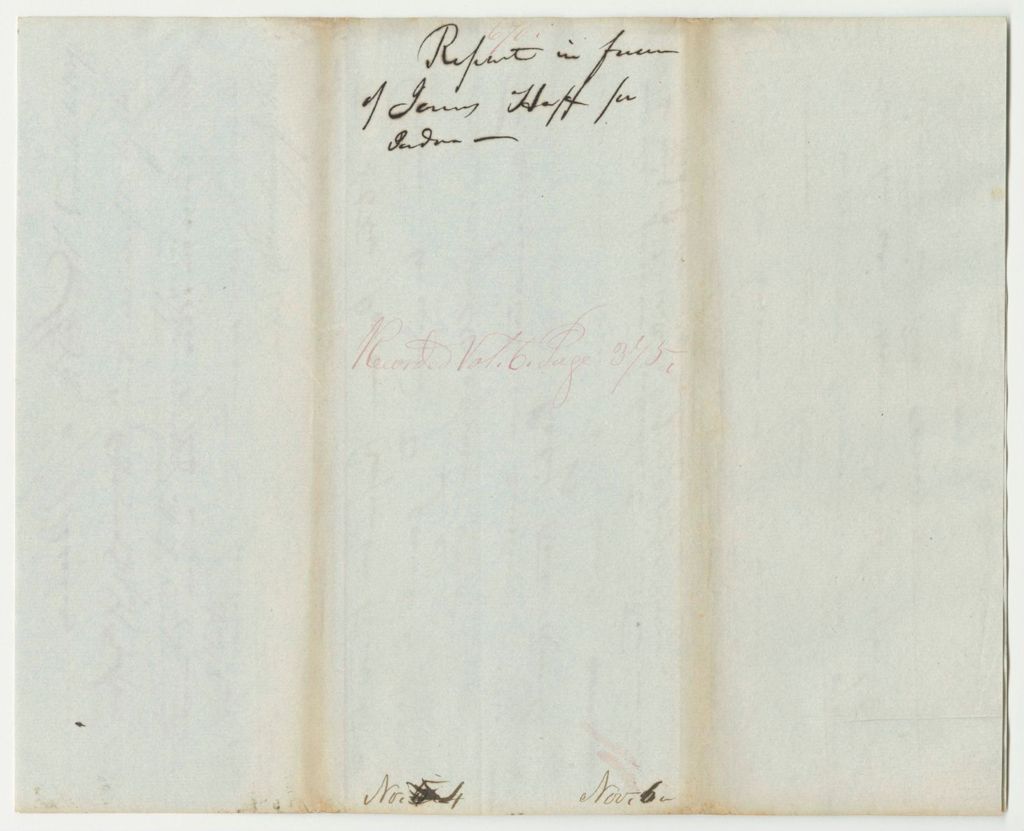 Report in favor
of James Huff for
Pardon —
Recorded Vol. 6. Page 375.
No. 4 Nov. 6